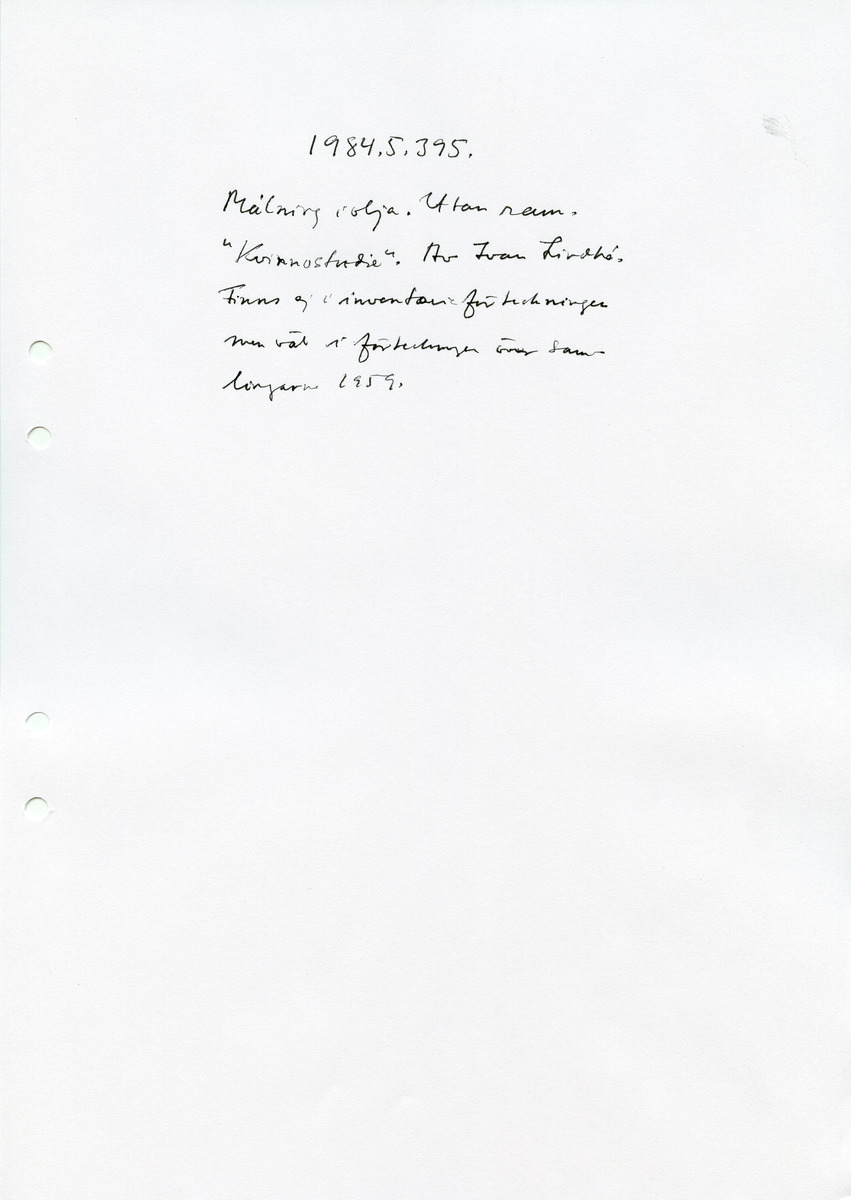 1984.5.395.
Målning i olja. Utan ram.
"Kvinnostudie". Av Ivan Lindhé.
Finns ej i inventarieförteckningen
men väl i förteckningen över sam-
lingarna 1959.